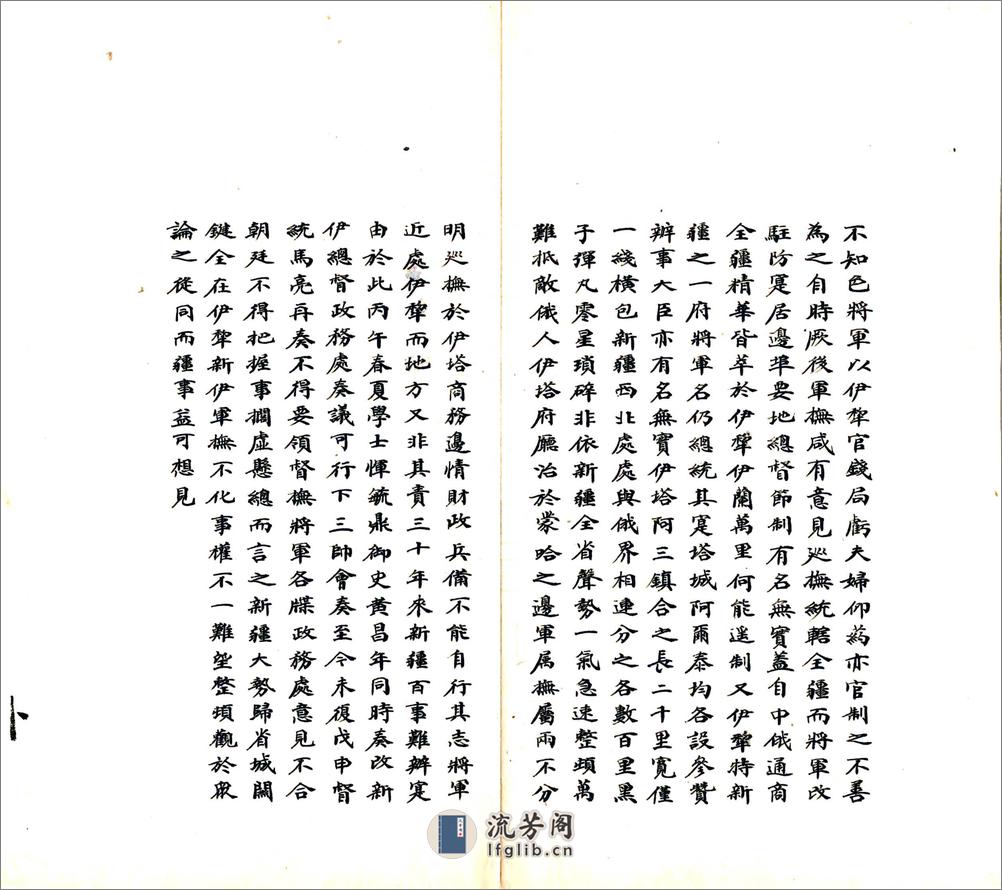 不知色將軍以伊犂官錢局虧夫婦仰葯亦官制之不善
為之自時厥後軍撫咸有意見廵撫統轄全疆而將軍改
駐防寔居邊埠要地總督節制有名無實蓋自中俄通商
全疆精華皆萃於伊犂伊蘭萬里何能遥制又伊犂特新
疆之一府將軍名仍總統其寔塔城阿爾泰均各設參贊
辦事大臣亦有名無實伊塔阿三鎮合之長二千里寬僅
一綫橫包新疆西北處處與俄界相連分之各數百里黑
子彈丸零星瑣碎非依新疆全省聲勢一氣急速整頓萬
難抵敵俄人伊塔府廳治於蒙哈之邊軍属撫屬兩不分
明廵撫於伊塔商務邊情財政兵備不能自行其志將軍
近處伊犂而地方又非其責三十年來新疆百事難辦寔
由於此丙午春夏學士惲毓鼎御史黃昌年同時奏改新
伊總督政務處奏議可行下三帥會奏至今未復戊申督
統馬亮再奏不得要領督撫將軍各牒政務處意見不合
朝廷不得把握事擱虛懸總而言之新疆大勢歸省城關
鍵全在伊犂新伊軍撫不化事權不一難望整頓觀於眾
論之從同而疆事益可想見
流芳阁
lfglib.cn